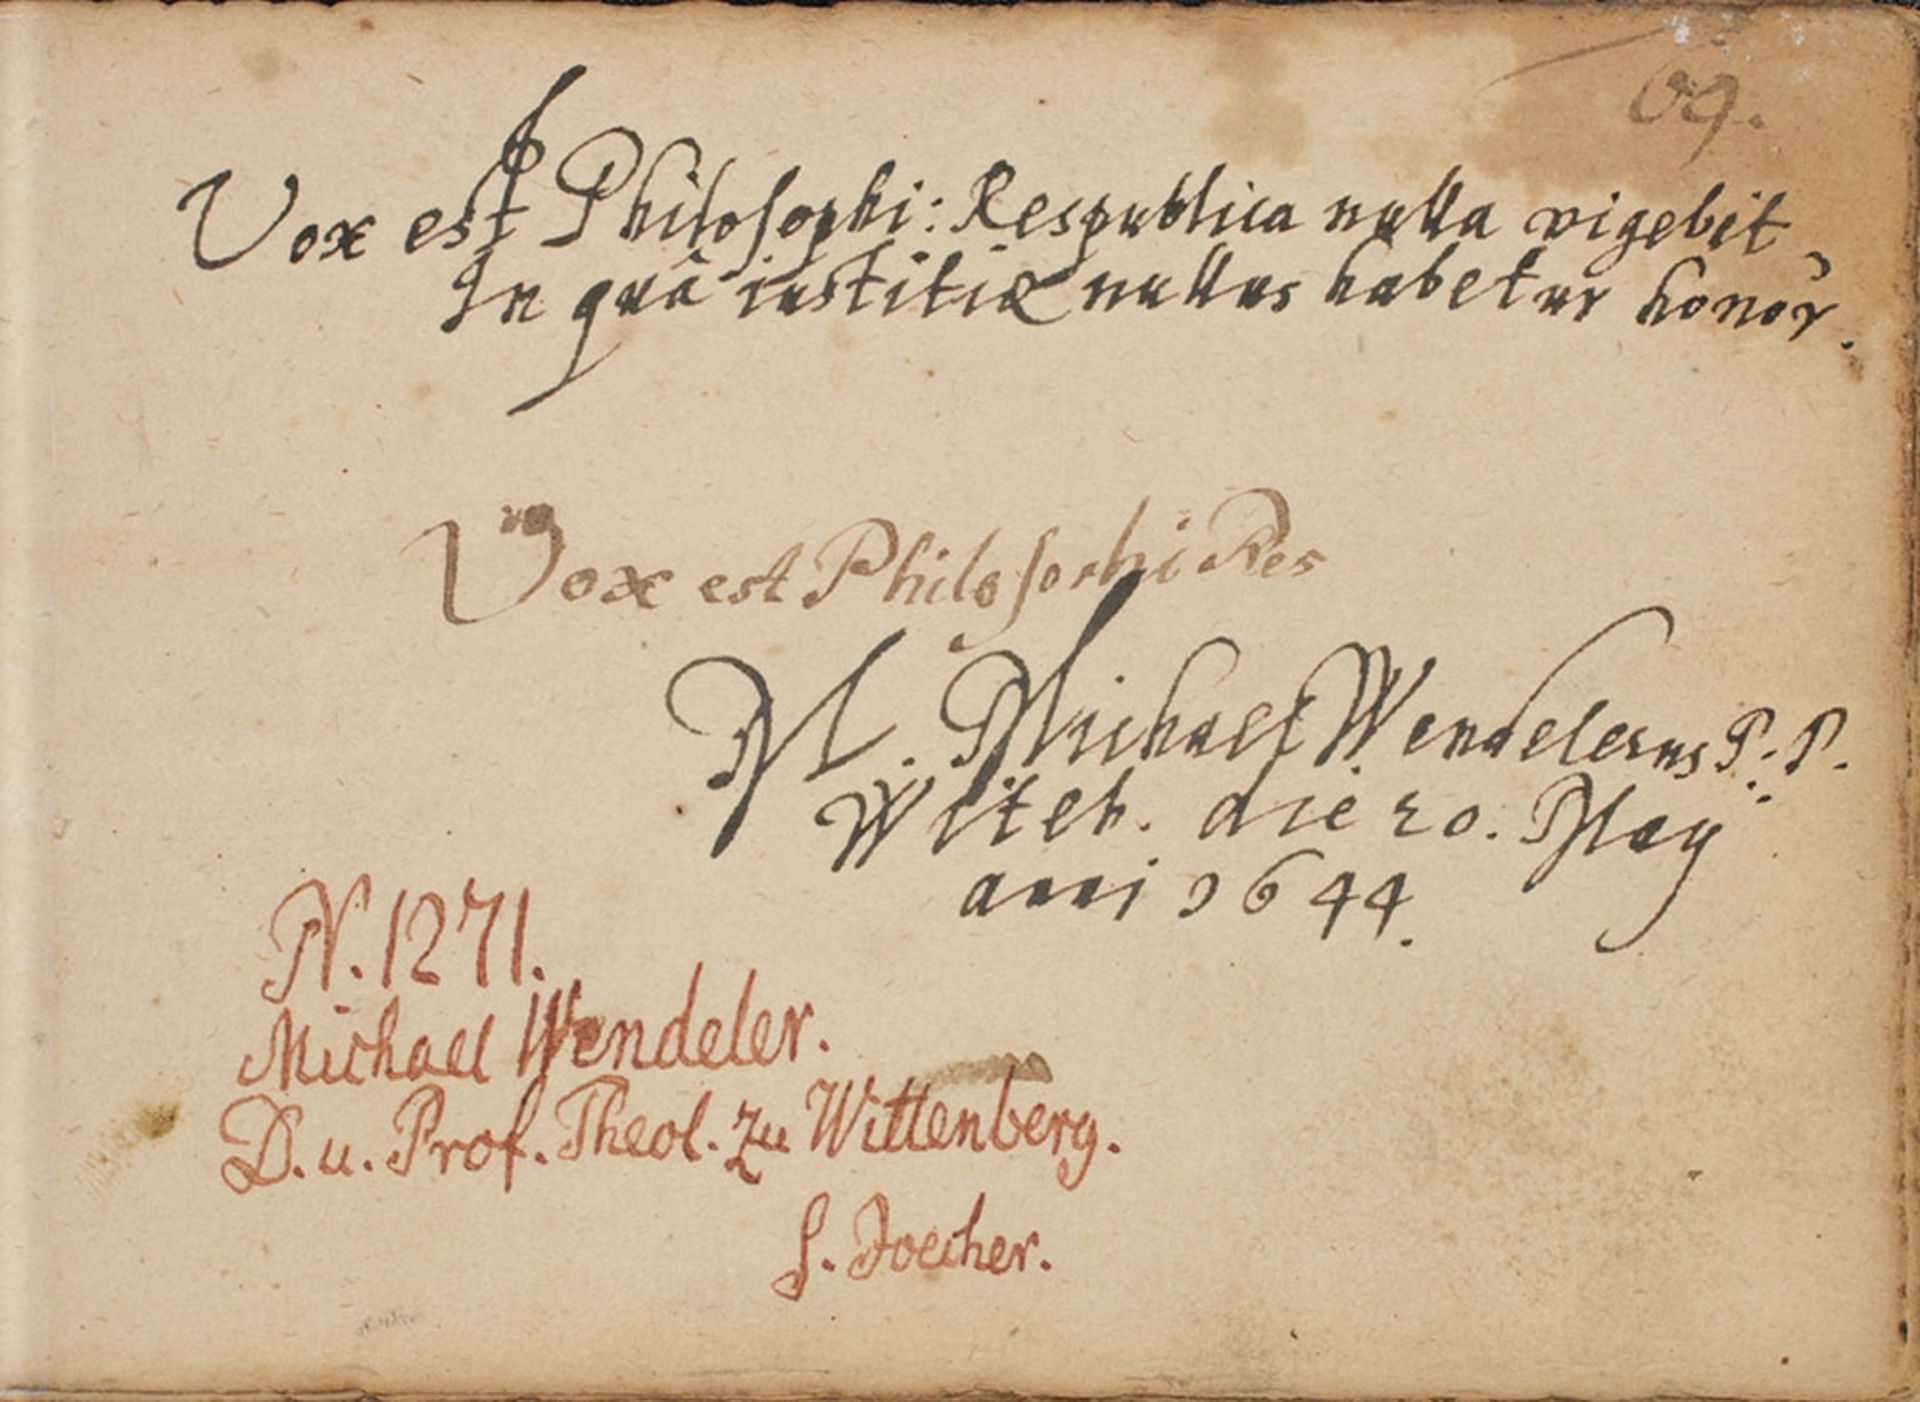 69.
Vox est Philosophi: Respublica nulla vigebit,
In quâ iustitiæ nullus habetur honor.
Vox est Philosophi Res
M. Michael Wendelerus P. P.
Witeb. die 20. May
anni 1644.
N. 1271.
Michael Wendeler.
D. u. Prof. Theol. zu Wittenberg.
S. Joecher.